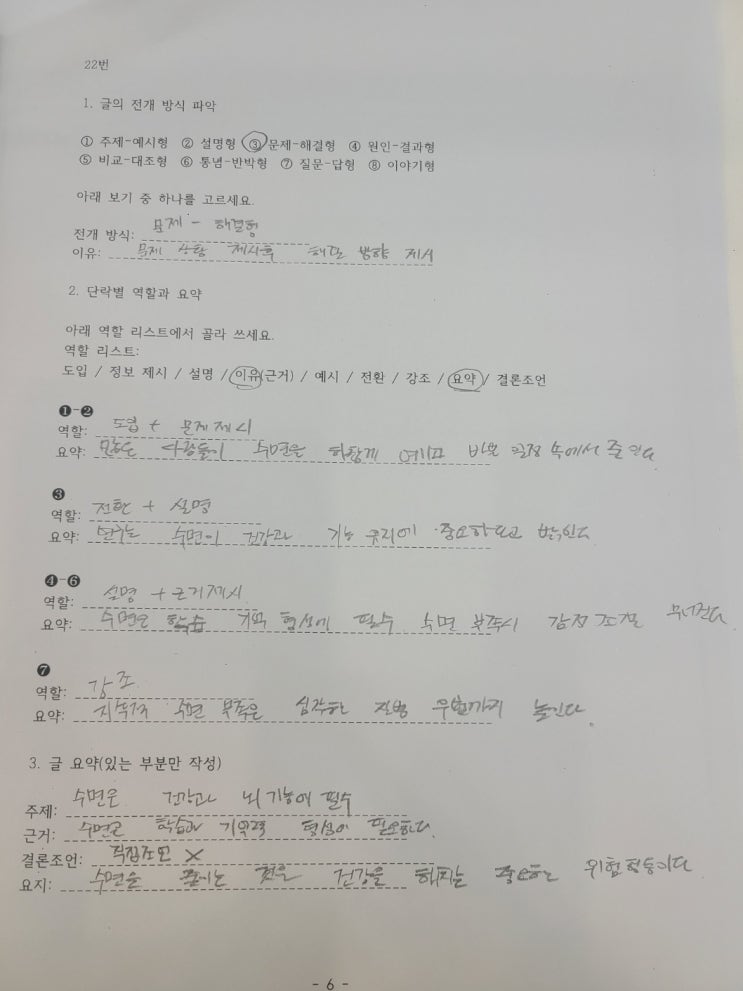 22번
1. 글의 전개 방식 파악
① 주제-예시형 ② 설명형 ③ 문제-해결형 ④ 원인-결과형
⑤ 비교-대조형 ⑥ 통념-반박형 ⑦ 질문-답형 ⑧ 이야기형
아래 보기 중 하나를 고르세요.
전개 방식: 문제 - 해결형
이유: 문제 상황 제시후 방향 제시
2. 단락별 역할과 요약
아래 역할 리스트에서 골라 쓰세요.
역할 리스트:
도입 / 정보 제시 / 설명 / 이유(근거) / 예시 / 전환 / 강조 / 요약 / 결론조언
❶-❷
역할: 도입 + 문제제시
요약: 많은 사람들이 수면을 하찮게 여기고 바쁜 일정 속에서 줄인다
❸
역할: 전환 + 설명
요약: 연구는 수면이 건강과 기능 유지에 중요하다고 밝힌다
❹-❻
역할: 설명 + 근거제시
요약: 수면은 학습 기억 형성에 필수 수면 부족시 감정조절 무너진다
❼
역할: 강조
요약: 지속적 수면 부족은 심각한 질병 위험까지 높인다.
3. 글 요약(있는 부분만 작성)
주제: 수면은 건강과 뇌 기능에 필수
근거: 수면은 학습과 기억력 형성에 필요하다.
결론조언: 직접조언 X
요지: 수면을 줄이는 것은 건강을 해치는 위험 행동이다
- 6 -